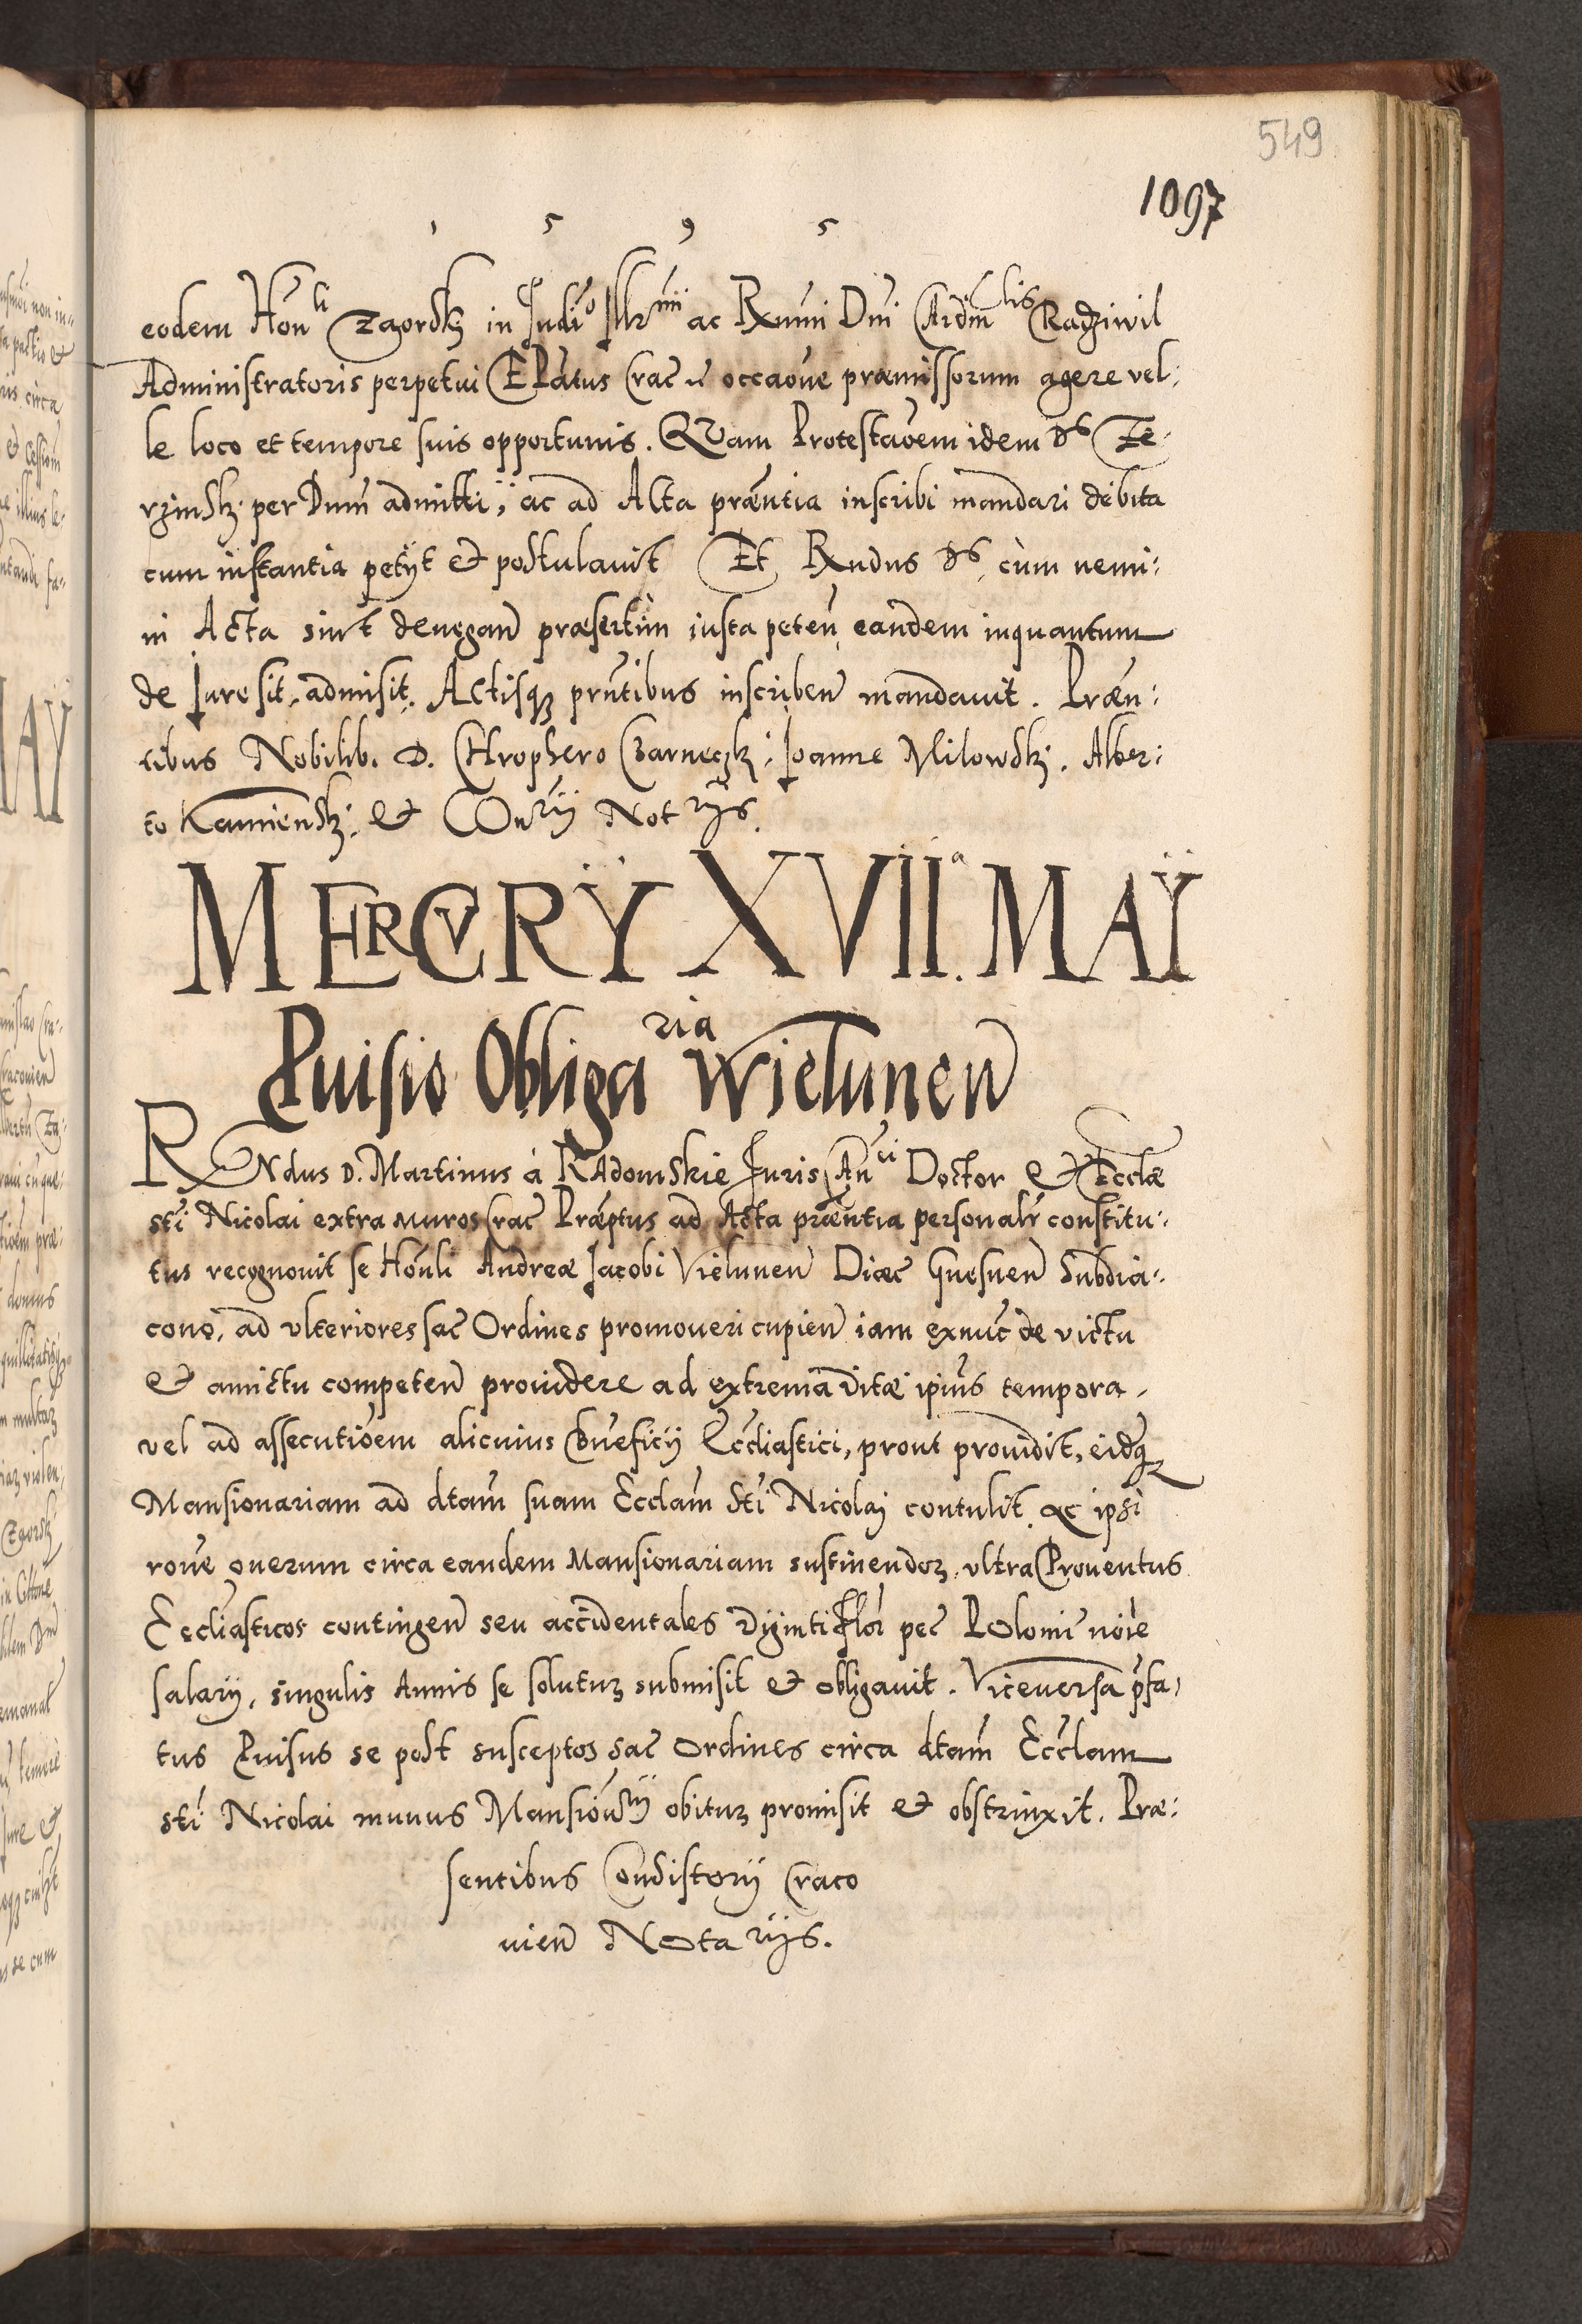 549
1097
1 5 9 5
eodem Honli Zgorsky in Judio Illrmi ac Rxmi Dni Cardinlis Radziwil
Administratoris perpetui EPatus Crac occaone praemissorum agere vel:
le loco et tempore suis opportunis. QVam Protestaoem idem ds Ze:
rzinsky per Dnm admitti, ac ad Acta praentia inscribi mandari debita
cum instantia petÿt et postulavit Et Rxndus ds, cùm nemi:
ni Acta sint denegan praesertim iusta peten, eandem inquantum
de Iure sit, admisit, Actisq3 prntibus inscriben mandavit. Praen:
tibus Nobilib. D. CHrophero Czarnecky: Joanne Milowsky. Alber:
to Kamiensky: et COnrÿ Not rÿs.
MERCVRŸ XVIIa MAŸ
Puisio Obligaria Wielunen
RENdus D. Martinus à RAdomskie Juris Anci Doctor et Ecclae
sti Nicolai extra muros Crac Praeptus ad Acta praentia personalr constitu:
tus recognovit se Honli Andreae Jacobi Vielunen Dioec Gnesnen Subdia:
cono, ad vlteriores sac Ordines promoveri cupien iam exnuc de victu
et amictu competen providere ad extrema vitae ipius tempora,
vel ad assecutioem alicuius Bneficÿ Eccliastici, prout providit, eidq3
Mansionariam ad dtam suam Ecclam Sti Nicolaj contulit, ac ipsi
rone onerum circa eandem Mansionariam sustinendor3, vltra Proventus
Eccliasticos contingen seu accidentales Viginti Flor pec POloni noie
salarÿ, singulis Annis se solutur3 submisit et obligavit. Viceversa pfa:
tus Puisus se post susceptos sac Ordines circa dtam Ecclam
sti Nicolai munus Mansionrÿ obitur3 promisit et obstrinxit. Prae:
sentibus Consistorÿ Craco
vien NOta rÿs.